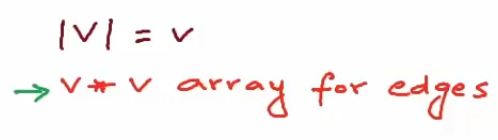 |V| = v
→ v * v array for edges